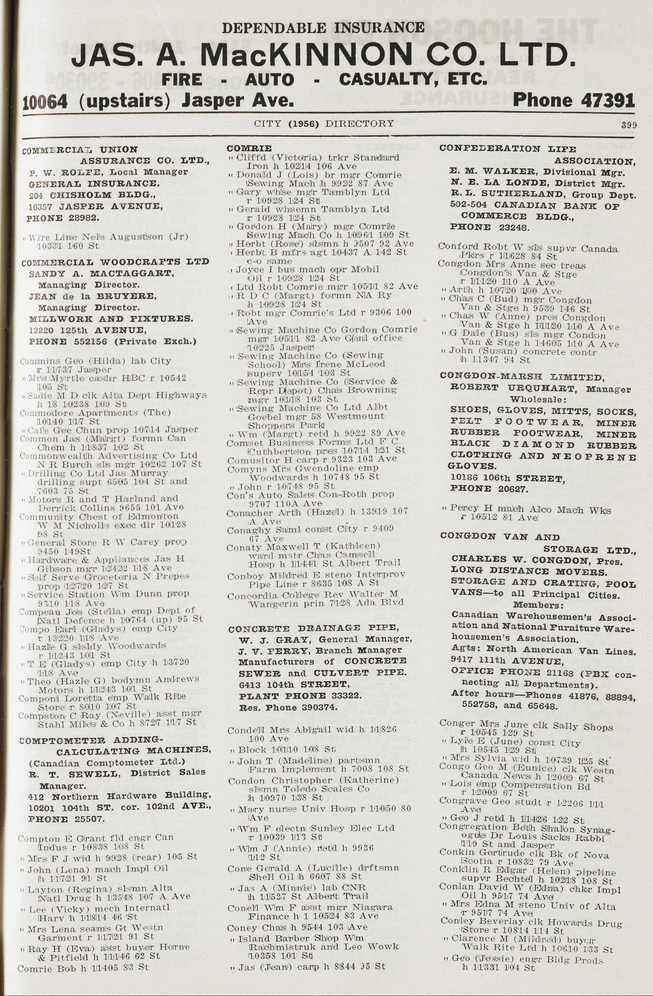 DEPENDABLE INSURANCE
JAS. A. MacKINNON CO. LTD.
FIRE - AUTO - CASUALTY, ETC.
10064 (upstairs) Jasper Ave. Phone 47391
CITY (1956) DIRECTORY 399
COMMERCIAL UNION
ASSURANCE CO. LTD.,
P. W. ROLFE, Local Manager
GENERAL INSURANCE.
204 CHISHOLM BLDG.,
10357 JASPER AVENUE,
PHONE 28982.
" Wire Line Nels Augustson (Jr)
10331 160 St
COMMERCIAL WOODCRAFTS LTD
SANDY A. MACTAGGART,
Managing Director.
JEAN de la BRUYERE,
Managing Director.
MILLWORK AND FIXTURES.
12220 125th AVENUE,
PHONE 552156 (Private Exch.)
Commins Geo (Hilda) lab City
r 11737 Jasper
" Mrs Myrtle cashr HBC r 10542
105 St
" Sadie M D clk Alta Dept Highways
h 18 10238 109 St
Commodore Apartments (The)
10140 117 St
" Cafe Gee Chun prop 10714 Jasper
Common Jas (Margt) formn Can
Chem h 11837 102 St
Commonwealth Advertising Co Ltd
N R Burch sls mgr 10262 107 St
" Drilling Co Ltd Jas Murray
drilling supt 6505 104 St and
7603 75 St
" Motors R and T Harland and
Derrick Collins 9655 101 Ave
Community Chest of Edmonton
W M Nicholls exec dir 10128
98 St
" General Store R W Carey prop
9450 149St
" Hardware & Appliances Jas H
Gibson mgr 12422 118 Ave
" Self Serve Groceteria N Prepes
prop 12720 127 St
" Service Station Wm Dunn prop
9310 118 Ave
Compeau Jos (Stella) emp Dept of
Natl Defence h 10764 (up) 95 St
Compo Earl (Gladys) emp City
r 13220 118 Ave
" Hazle G slsldy Woodwards
r 11243 101 St
" T E (Gladys) emp City h 13720
118 Ave
" Theo (Hazle G) bodymn Andrews
Motors h 11243 101 St
Componi Loretta emp Walk Rite
Store r 8010 107 St
Compston C Ray (Neville) asst mgr
Stahl Miles & Co h 8727 117 St
COMPTOMETER ADDING-
CALCULATING MACHINES,
(Canadian Comptometer Ltd.)
R. T. SEWELL, District Sales
Manager.
412 Northern Hardware Building,
10201 104TH ST. cor. 102nd AVE.,
PHONE 25507.
Compton E Grant fld engr Can
Indus r 10838 108 St
" Mrs F J wid h 9928 (rear) 105 St
" John (Lena) mach Impl Oil
h 11721 91 St
" Layton (Regina) slsmn Alta
Natl Drug h 13548 107 A Ave
" Lee (Vicky) mech Internatl
Harv h 11814 46 St
" Mrs Lena seams Gt Westn
Garment r 11721 91 St
" Ray H (Eva) asst buyer Horne
& Pitfield h 11146 62 St
Comrie Bob h 11405 83 St
COMRIE
" Cliffd (Victoria) trkr Standard
Iron h 10214 106 Ave
" Donald J (Lois) br mgr Comrie
Sewing Mach h 9922 87 Ave
" Gary whse mgr Tamblyn Ltd
r 10928 124 St
" Gerald whsemn Tamblyn Ltd
r 10928 124 St
" Gordon H (Mary) mgr Comrie
Sewing Mach Co h 10961 109 St
" Herbt (Rose) slsmn h 9507 92 Ave
" Herbt B mfrs agt 10437 A 142 St
c-o same
" Joyce I bus mach opr Mobil
Oil r 10928 124 St
" Ltd Robt Comrie mgr 10511 82 Ave
" R D C (Margt) formn NA Ry
h 10928 124 St
" Robt mgr Comrie's Ltd r 9206 100
Ave
" Sewing Machine Co Gordon Comrie
mgr 10511 82 Ave Genl office
10225 Jasper
" Sewing Machine Co (Sewing
School) Mrs Irene McLeod
superv 10154 103 St
" Sewing Machine Co (Service &
Repr Depot) Chas Browning
mgr 10118 103 St
" Sewing Machine Co Ltd Albt
Goebel mgr 58 Westmount
Shoppers Park
" Wm (Margt) retd h 9922 89 Ave
Comset Business Forms Ltd F C
Cuthbertson pres 10714 121 St
Comusitor H carp r 9323 103 Ave
Comyns Mrs Gwendoline emp
Woodwards h 10748 95 St
" John r 10748 95 St
Con's Auto Sales Con-Roth prop
9707 110A Ave
Comacher Arth (Hazel) h 13919 107
A Ave
Conaghy Saml const City r 9409
67 Ave
Conaty Maxwell T (Kathleen)
ward mstr Chas Camsell
Hosp h 11441 St Albert Trail
Conboy Mildred E steno Interprov
Pipe Line r 8635 108 A St
Concordia College Rev Walter M
Wangerin prin 7128 Ada Blvd
CONCRETE DRAINAGE PIPE,
W. J. GRAY, General Manager,
J. V. FERRY, Branch Manager
Manufacturers of CONCRETE
SEWER and CULVERT PIPE.
6413 104th STREET,
PLANT PHONE 33322.
Res. Phone 390374.
Condell Mrs Abigail wid h 11826
100 Ave
" Block 10110 108 St
" John T (Madeline) partsmn
Farm Implement h 7008 108 St
Condon Christopher (Katherine)
slsmn Toledo Scales Co
h 10970 138 St
" Mary nurse Univ Hosp r 11050 80
Ave
" Wm F electn Sunley Elec Ltd
r 10039 113 St
" Wm J (Annie) retd h 9936
112 St
Cone Gerald A (Lucille) drftsmn
Shell Oil h 6607 88 St
" Jas A (Minnie) lab CNR
h 11527 St Albert Trail
Conell Wm F asst mgr Niagara
Finance h 1 10524 83 Ave
Coney Chas h 9544 103 Ave
" Island Barber Shop Wm
Rachmistruk and Leo Wowk
10358 101 St
" Jas (Jean) carp h 8844 95 St
CONFEDERATION LIFE
ASSOCIATION,
E. M. WALKER, Divisional Mgr.
N. E. LA LONDE, District Mgr.
R. L. SUTHERLAND, Group Dept.
502-504 CANADIAN BANK OF
COMMERCE BLDG.,
PHONE 23248.
Conford Robt W sls supvr Canada
Pkrs r 11628 84 St
Congdon Mrs Anne sec treas
Congdon's Van & Stge
r 11120 110 A Ave
" Arth h 10720 100 Ave
" Chas C (Bud) mgr Congdon
Van & Stge h 9539 146 St
" Chas W (Anne) pres Congdon
Van & Stge h 11120 110 A Ave
" G Dale (Bus) sls mgr Condon
Van & Stge h 14605 110 A Ave
" John (Susan) concrete contr
h 11347 94 St
CONGDON-MARSH LIMITED,
ROBERT URQUHART, Manager
Wholesale:
SHOES, GLOVES, MITTS, SOCKS,
FELT FOOTWEAR, MINER
RUBBER FOOTWEAR, MINER
BLACK DIAMOND RUBBER
CLOTHING AND NEOPRENE
GLOVES.
10186 106th STREET,
PHONE 20627.
" Percy H mach Alco Mach Wks
r 10512 81 Ave
CONGDON VAN AND
STORAGE LTD.,
CHARLES W. CONGDON, Pres.
LONG DISTANCE MOVERS.
STORAGE AND CRATING, POOL
VANS—to all Principal Cities.
Members:
Canadian Warehousemen's Associ-
ation and National Furniture Ware-
housemen's Association.
Agts: North American Van Lines.
9417 111th AVENUE,
OFFICE PHONE 21168 (PBX con-
necting all Departments).
After hours—Phones 41876, 88894,
552758, and 65648.
Conger Mrs June clk Sally Shops
r 10545 129 St
" Lyle E (June) const City
h 10545 129 St
" Mrs Sylvia wid h 10739 125 St
Congo Geo M (Eunice) clk Westn
Canada News h 12009 67 St
" Lois emp Compensation Bd
r 12009 67 St
Congrave Geo studt r 12206 111
Ave
" Geo J retd h 11426 122 St
Congregation Beth Shalon Synag-
ogue Dr Louis Sacks Rabbi
119 St and Jasper
Conkin Gertrude clk Bk of Nova
Scotia r 10832 79 Ave
Conklin R Edgar (Helen) pipeline
supvr Bechtel h 10218 108 St
Conlan David W (Edna) chkr Impl
Oil h 9517 74 Ave
" Mrs Edna M steno Univ of Alta
r 9517 74 Ave
Conley Beverlay clk Howards Drug
Store r 10814 114 St
" Clarence M (Mildred) buyer
Walk Rite Ltd h 10610 133 St
" Geo (Jessie) engr Bldg Prods
h 11331 104 St